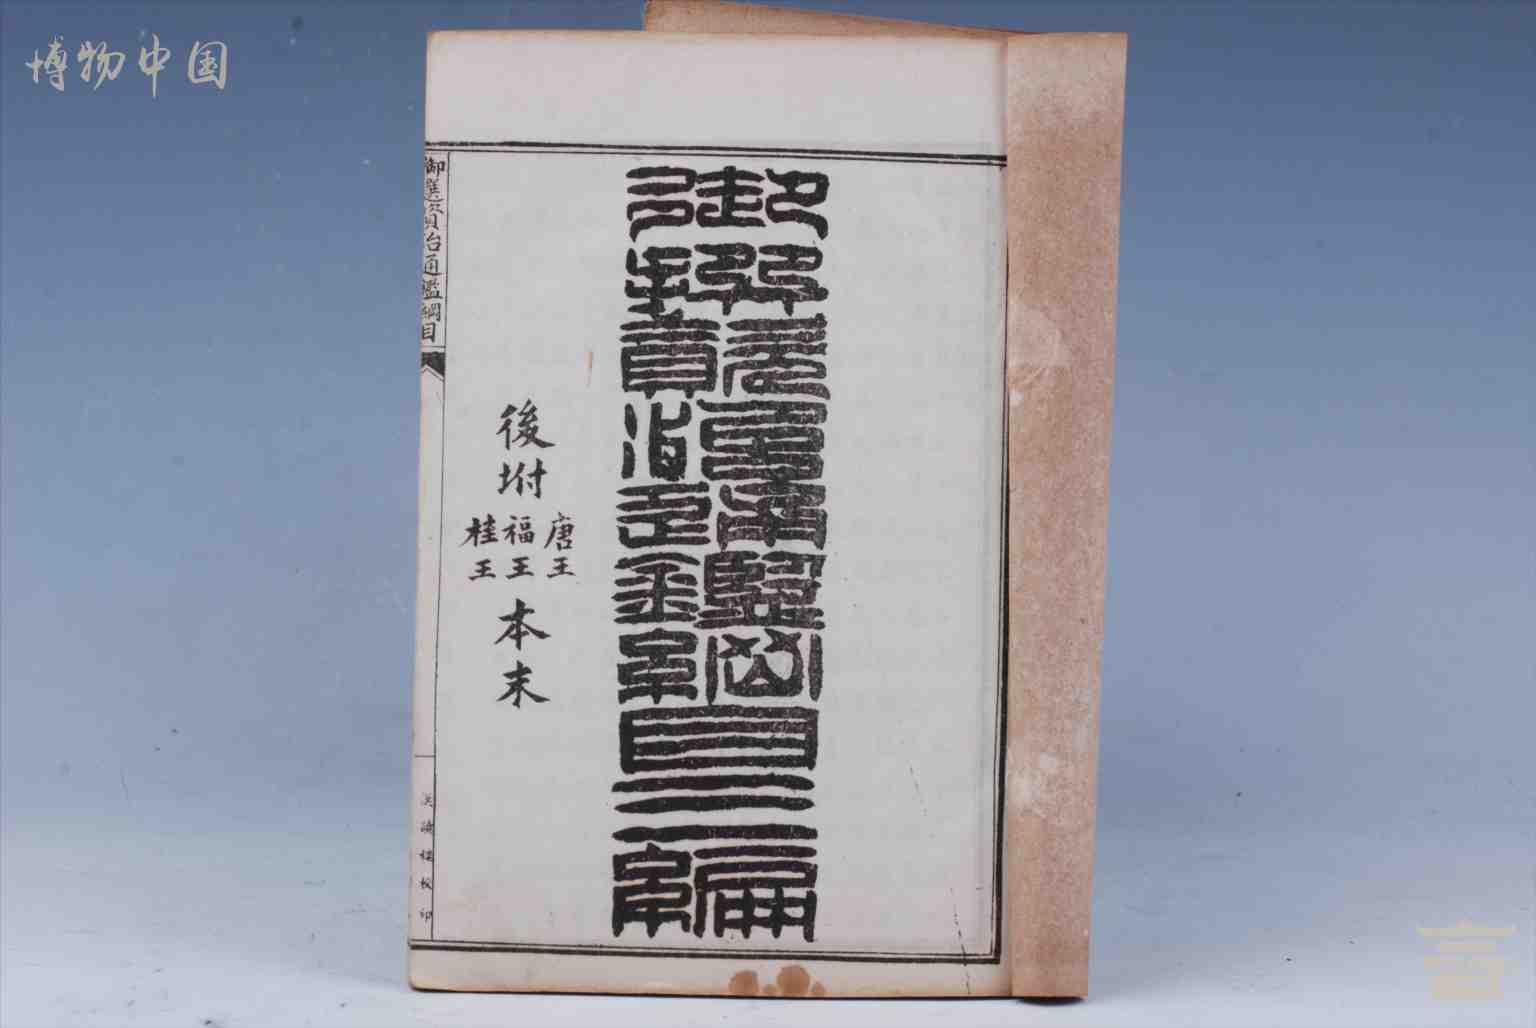 博物中国
御撰資治通鑑綱目三編
後坿
唐王
福王
桂王
本末
御選資治通鑑綱目
樓校印